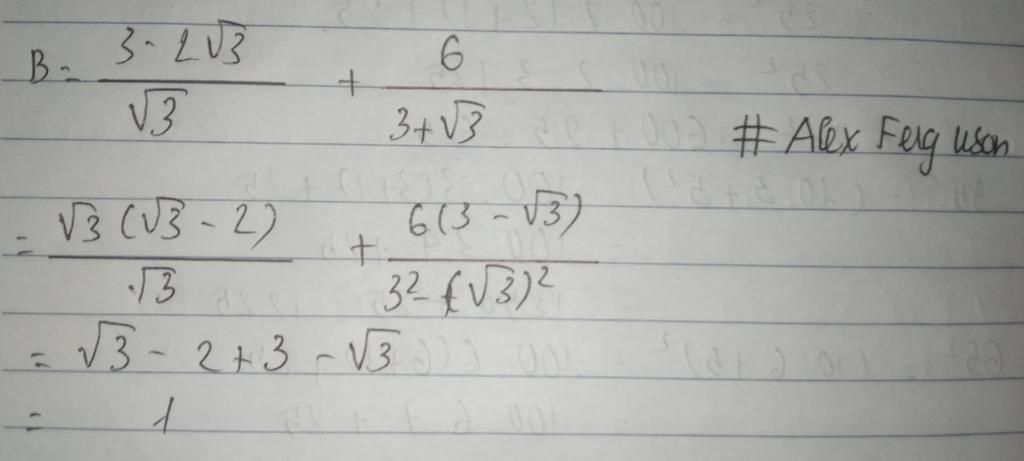 B = (3 - 2√3)/√3 + 6/(3+√3)
# Alex Ferguson
= √3(√3 - 2)/√3 + 6(3 - √3)/(3² - (√3)²)
= √3 - 2 + 3 - √3
= 1